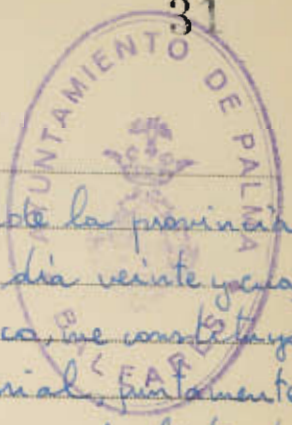 31
AYUNTAMIENTO DE PALMA
BALEARES
de la provincia
día veinte y cua
co, me constituy
nial, juntamente